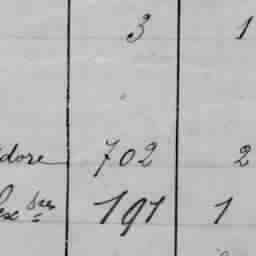 3 1
dore 702 2
191 1